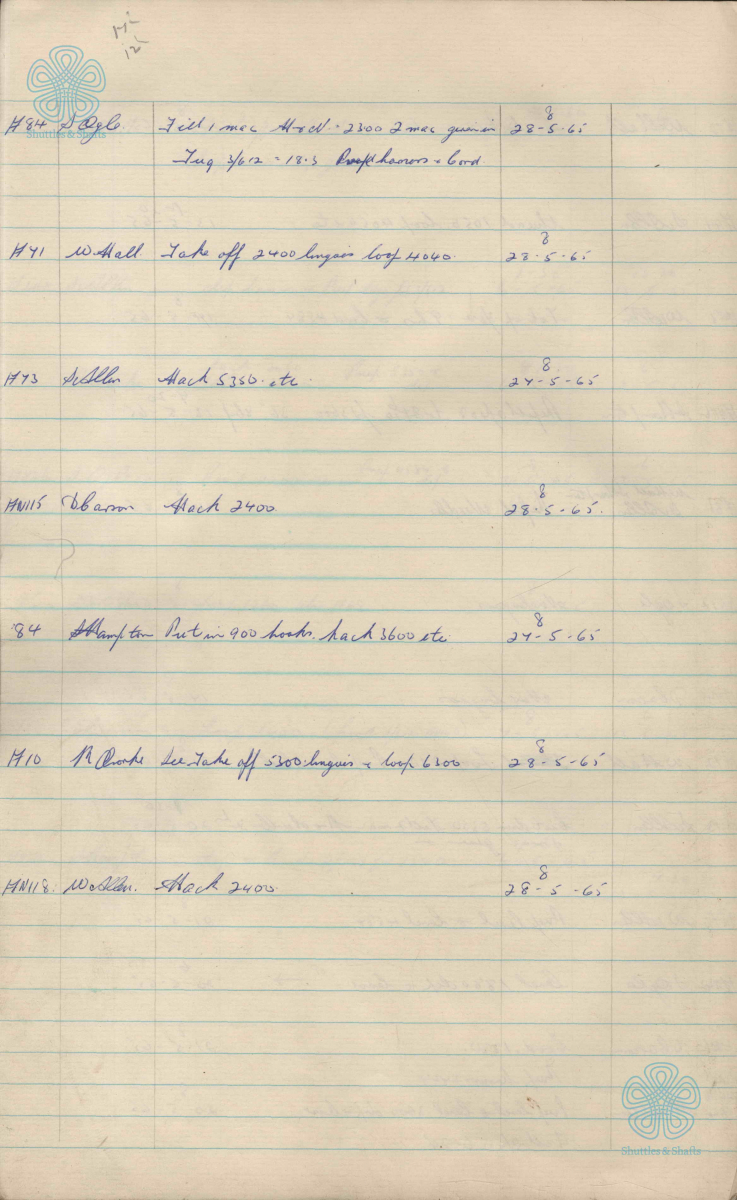 Shuttles & Shafts
8
H84 S Ogle Fill 1 mac 2300 2 mac given in 28-5-65
Tug 3/612 = 18.3 & Cord
8
H41 W Hall. Take off 2400 linguis loop 4040. 28-5-65
8
H43 S Allen Hack 5350. etc. 27-5-65
8
HN115 D Carson Hack 2400 28-5-65.
8
84 Hampton Put in 900 hooks. hack 3600 etc. 27-5-65
8
H10 R See Take off 5300 linguis & loop 6300 28-5-65
8
HN118. W Allen. Hack 2400. 28-5-65
Shuttles & Shafts